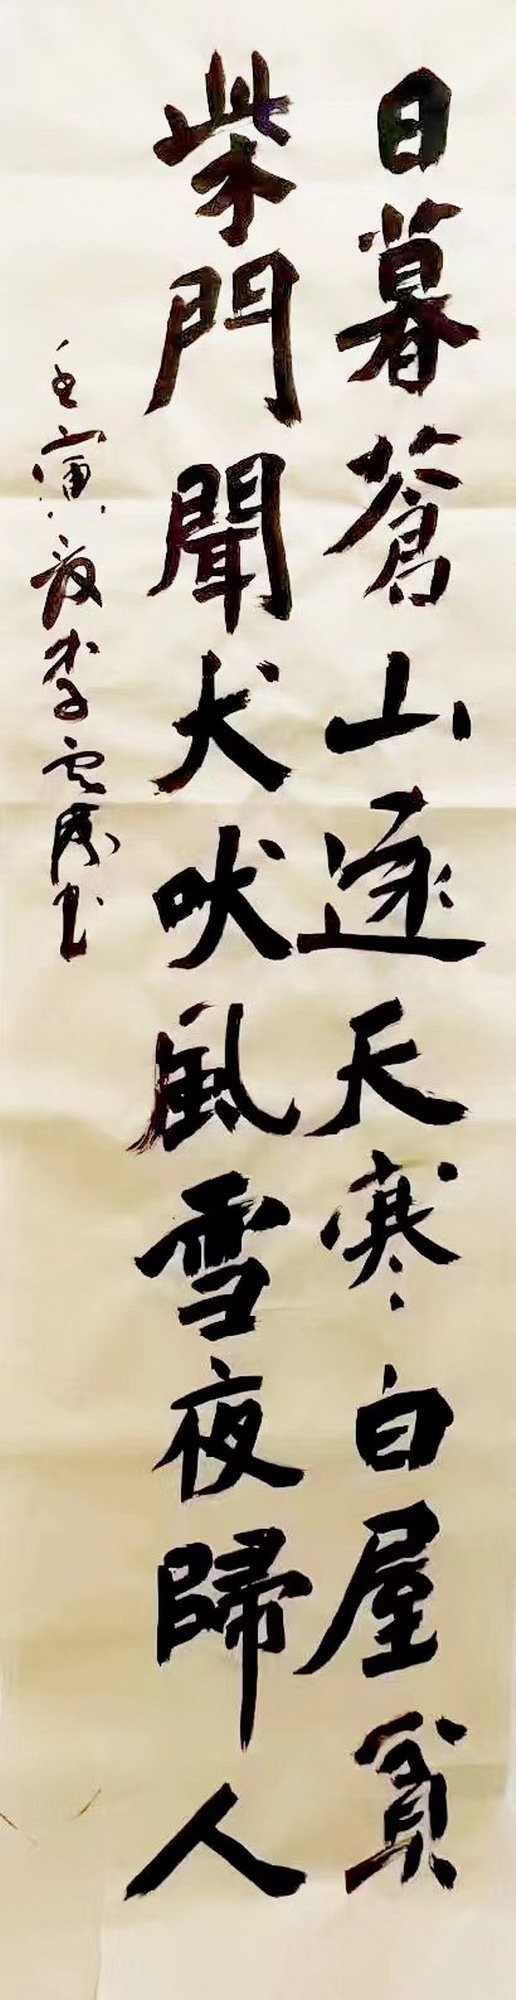 日暮蒼山遠天寒白屋貧
柴門聞犬吠風雪夜歸人
壬寅夏李書